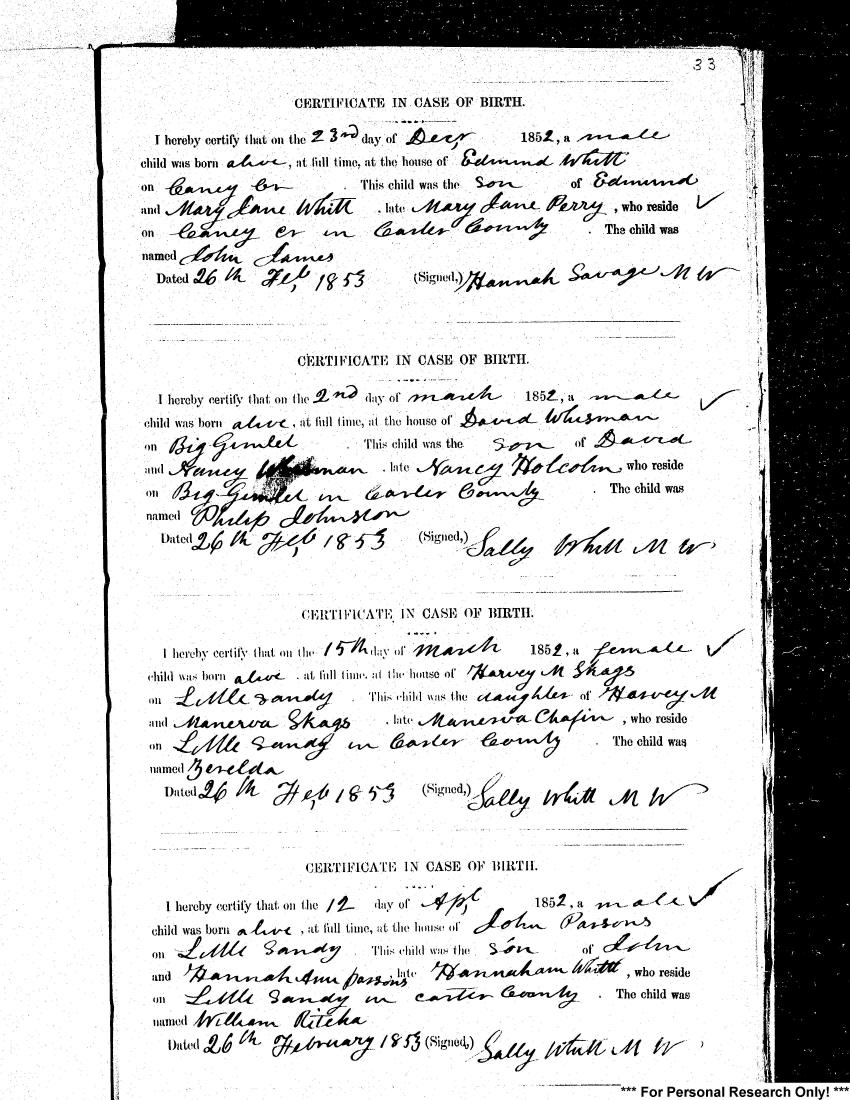 33
CERTIFICATE IN CASE OF BIRTH.
I hereby certify that on the 23rd day of Decr, 1852, a male
child was born alive, at full time, at the house of Edmund Whitt
on Caney Cr . This child was the son of Edmund
and Mary Jane Whitt , late Mary Jane Perry, who reside
on Caney Cr in Carter County . The child was
named John James
Dated 26th Feb, 1853 (Signed,) Hannah Savage M W
CERTIFICATE IN CASE OF BIRTH.
I hereby certify that on the 2nd day of march 1852, a male
child was born alive, at full time, at the house of David Whisman
on Big Gimlet . This child was the son of David
and Nancy Whisman , late Nancy Holcolm, who reside
on Big Gimlet in Carter County . The child was
named Philip Johnston
Dated 26th Feb, 1853 (Signed,) Sally Whitt M W
CERTIFICATE IN CASE OF BIRTH.
I hereby certify that on the 15th day of march 1852, a female
child was born alive , at full time, at the house of Harvey M Skags
on Little Sandy . This child was the daughter of Harvey M
and Manerva Skags , late Manerva Chafin , who reside
on Little Sandy in Carter County . The child was
named Zerelda
Dated 26th Feb, 1853 (Signed,) Sally Whitt M W
CERTIFICATE IN CASE OF BIRTH.
I hereby certify that on the 12 day of Apl, 1852, a male
child was born alive , at full time, at the house of John Parsons
on Little Sandy . This child was the son of John
and Hannah Ann parsons, late Hannaham Whitt , who reside
on Little Sandy in carter County . The child was
named William Riteha
Dated 26th February 1853 (Signed,) Sally Whitt M W
*** For Personal Research Only! ***